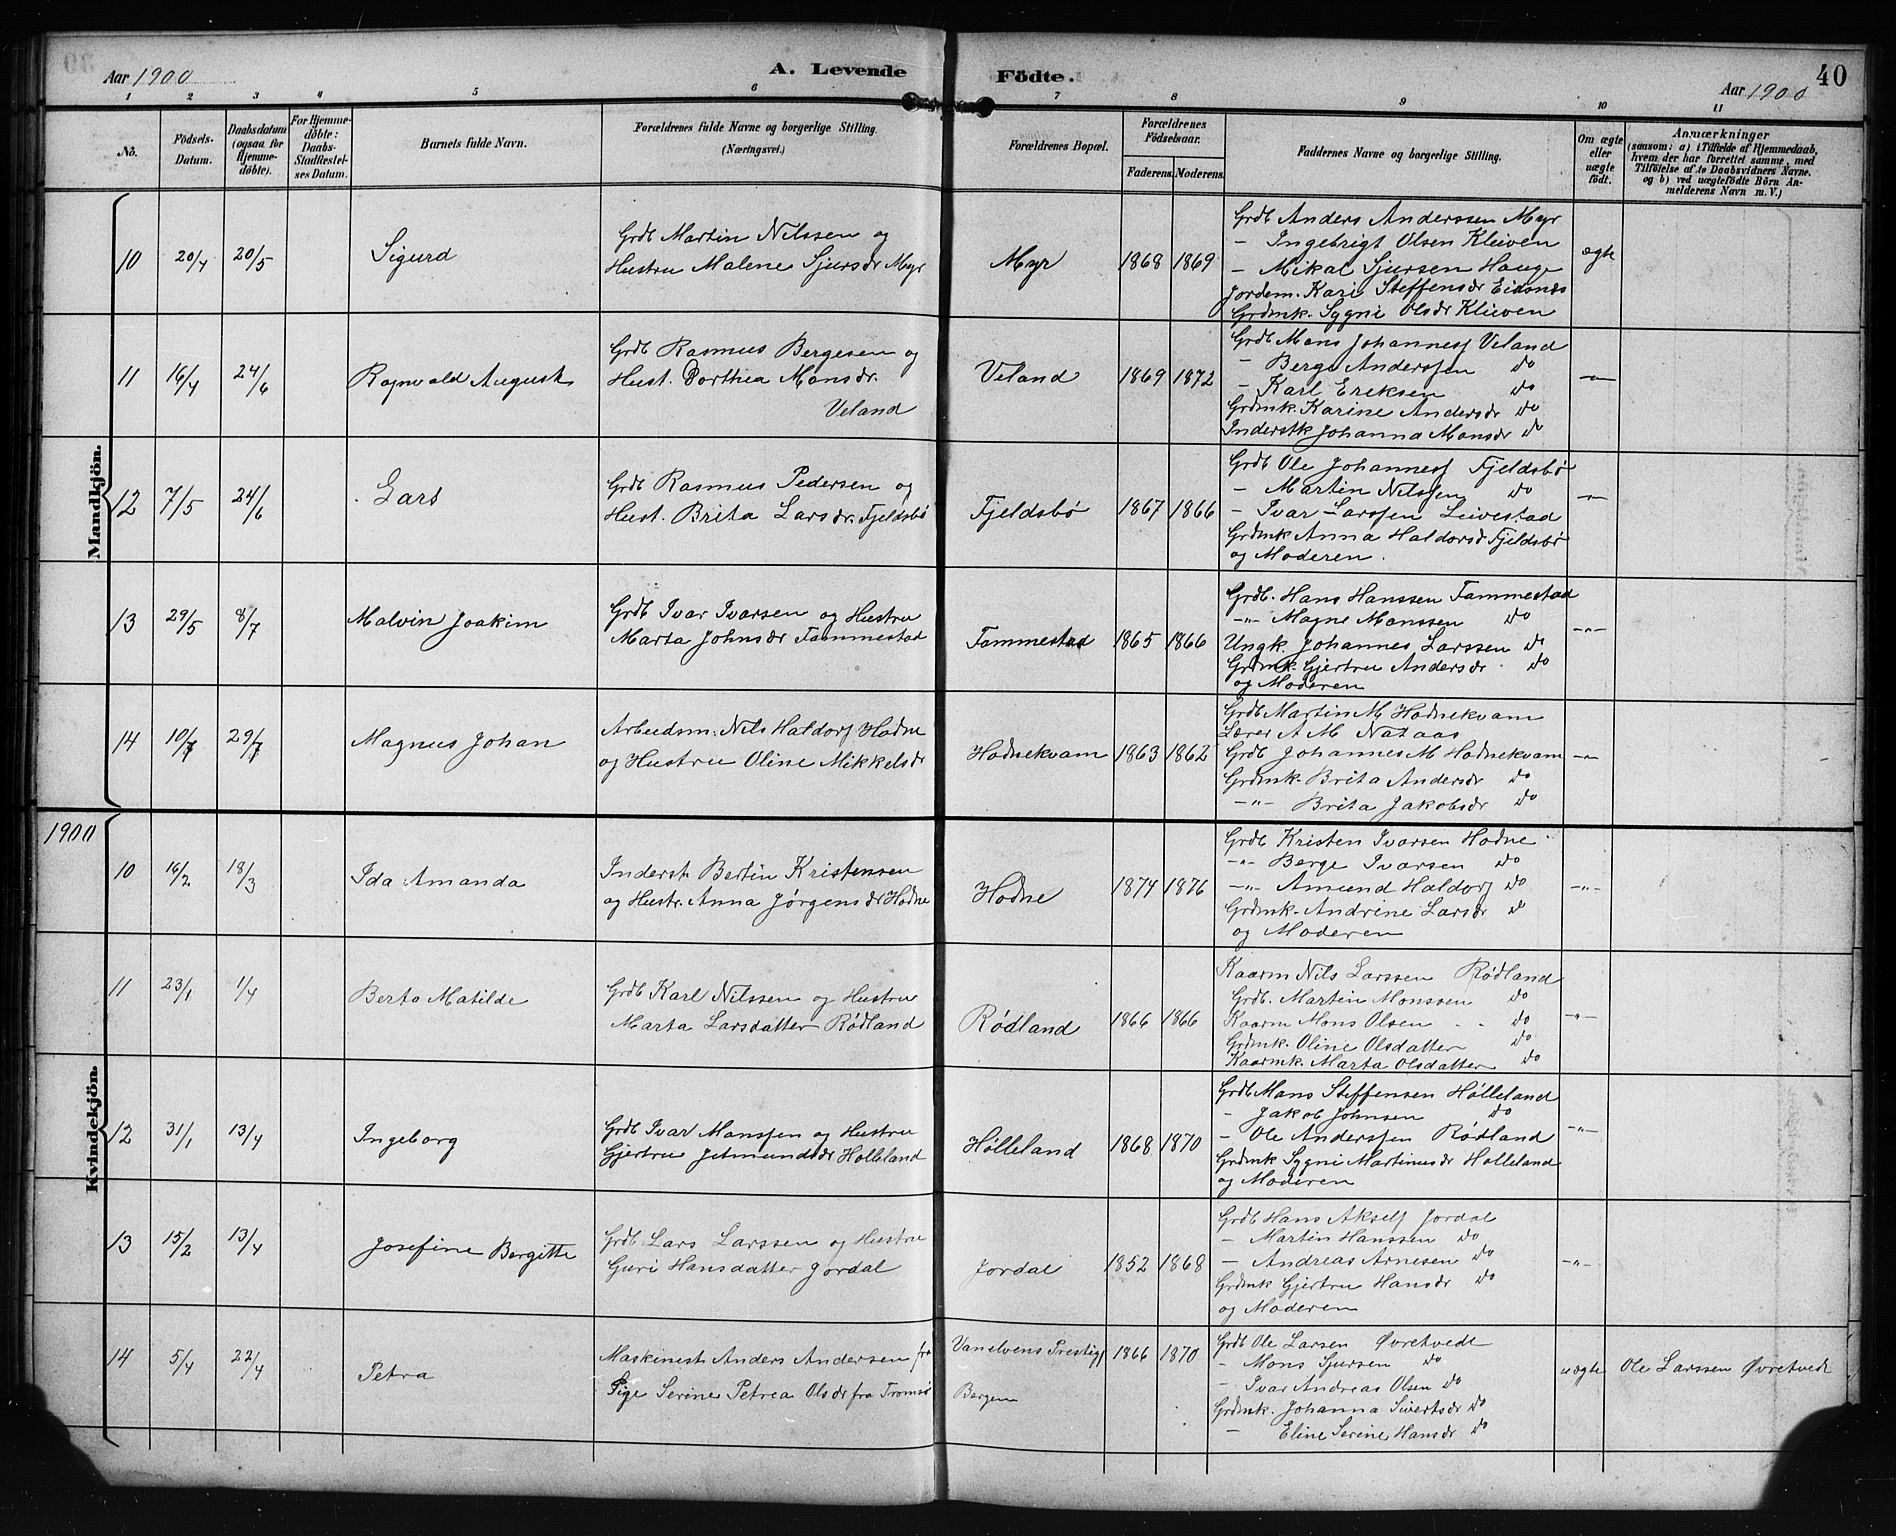 Aar 1900
A. Levende Födte.
Aar 1900
40
1 2 3 4 5 6 7 8 9 10 11
No.
Födsels-Datum.
Daabsdatum (ogsaa for Hjemme-döbte).
For Hjemme-döbte: Daabs-Stadfæstel-ses Datum.
Barnets fulde Navn.
Forældrenes fulde Navne og borgerlige Stilling. (Næringsvei.)
Forældrenes Bopæl.
Forældrenes Födselsaar.
Faderens. Moderens.
Faddernes Navne og borgerlige Stilling.
Om ægte eller uægte födt.
Anmærkninger
(saasom: a) i Tilfælde af Hjemmedaab,
hvem der har forrettet samme, med
Tilföielse af to Daabsvidners Navne.
og b) ved uægtefödte Börn An-
melderens Navn m. V.)
Mandkjön.
10 20/4 20/5 Sigurd
Grdb Martin Nilssen og
Hustru Malene Sjursdr Myr
Myr 1868 1869
Grdb Anders Anderssen Myr
— Ingebrigt Olsen Kleiven
— Mikal Sjursen Hauge
Jordem. Kari Steffensdr Eidsnes
Grdmk. Sygni Olsdr Kleiven
ægte
11 16/4 24/6 Ragnvald August
Grdb Rasmus Bergesen og
Hust. Dorthea Monsdr.
Veland
Veland 1869 1872
Grdb Mons Johannesf Veland
— Berge Anderssen do
— Karl Ereksen do
Grdmk. Karine Andersdr do
Inderstk Johanna Monsdr do
—"—
12 7/5 24/6 Lars
Grdb Rasmus Pedersen og
Hust. Brita Larsdr. Fjeldsbø
Fjeldsbø 1867 1866
Grdb Ole Johannesf Fjeldsbø
— Martin Nilssen do
— Ivar Larssen Leivestad
Grdmk Anna Haldorsd Fjeldsbø
og Moderen.
—"—
13 29/5 8/7 Malvin Joakim
Grdb Ivar Ivarsen og Hustru
Marta Johnsdr Tammestad
Tammestad 1865 1866
Grdb. Hans Hanssen Tammestad
—"— Magne Monssen do
Ungk. Johannes Larssen do
Grdmk. Gjertru Andersdr do
og Moderen
—"—
14 10/7 29/7 Magnus Johan
Arbeidsm. Nils Haldorf Hodne
og Hustru Oline Mikkelsdr
Hodnekvam 1863 1862
Grdb Martin M Hodnekvam
Lærer A M Nataas
Grdb Johannes M Hodnekvam
Grdmk. Brita Andersdr do
—"— Brita Jakobsdr do
—"—
1900
Kvindekjön.
10 16/2 18/3 Ida Amanda
Inderst Bertin Kristensen
og Hustr. Anna Jørgensdr Hodne
Hodne 1874 1876
Grdb Kristen Ivarsen Hodne
—"— Berge Ivarsen do
—"— Amund Haldorf do
Grdmk. Andrine Larsdr do
og Moderen
—"—
11 23/1 1/4 Berta Matilde
Grdb Karl Nilssen og Hustru
Marta Larsdatter Rødland
Rødland 1866 1866
Kaarm Nils Larssen Rødland
Grdb. Martin Monssen do
Kaarm Mons Olsen do
Grdmk. Oline Olsdatter do
Kaarmk. Marta Olsdatter do
—"—
12 31/1 13/4 Ingeborg
Grdb Ivar Monssen og Hustru
Gjertru Jetmundsdr Hølleland
Hølleland 1868 1870
Grdb Mons Steffensen Hølleland
— Jakob Johnsen do
— Ole Anderssen Rødland
Grdmk Sygni Martinusdr Hølleland
og Moderen
—"—
13 15/2 13/4 Josefine Bergitte
Grdb Lars Larssen og Hustru
Guri Hansdatter Jordal
Jordal 1852 1868
Grdb Hans Akself Jordal
— Martin Hanssen do
— Andreas Arnesen do
Grdmk Gjertru Hansdr do
og Moderen
—"—
14 5/4 22/4 Petra
Maskinest Anders Andersen fra
Pige Serine Petrea Olsdr fra Tromsø
Vanelvens Prestigj
Bergen
1866 1870
Grdb Ole Larsen Øvretvedt
— Mons Sjursen do
— Ivar Andreas Olsen do
Grdmk. Johanna Sivertsdr do
— Eline Serine Hansdr do
uægte
Ole Larssen Øvretvedt